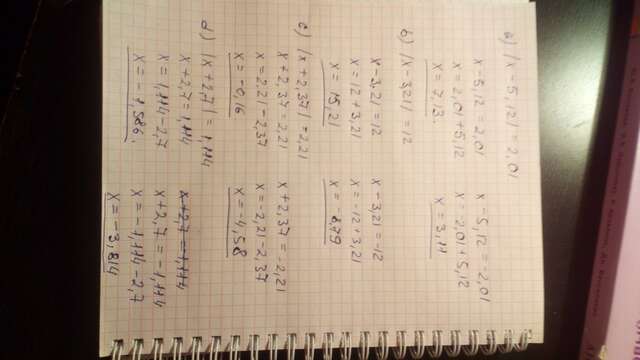 a) |x-5,12|=2,01
x-5,12=2,01 x-5,12=-2,01
x=2,01+5,12 x=-2,01+5,12
x=7,13. x=3,11
b) |x-3,21|=12
x-3,21=12 x-3,21=-12
x=12+3,21 x=-12+3,21
x=15,21 x=-8,79
c) |x+2,37|=2,21
x+2,37=2,21 x+2,37=-2,21
x=2,21-2,37 x=-2,21-2,37
x=-0,16 x=-4,58
d) |x+2,7|=1,114
x+2,7=1,114 x+2,7=1,114
x=1,114-2,7 x+2,7=-1,114
x=-1,586. x=-1,114-2,7
x=-3,814